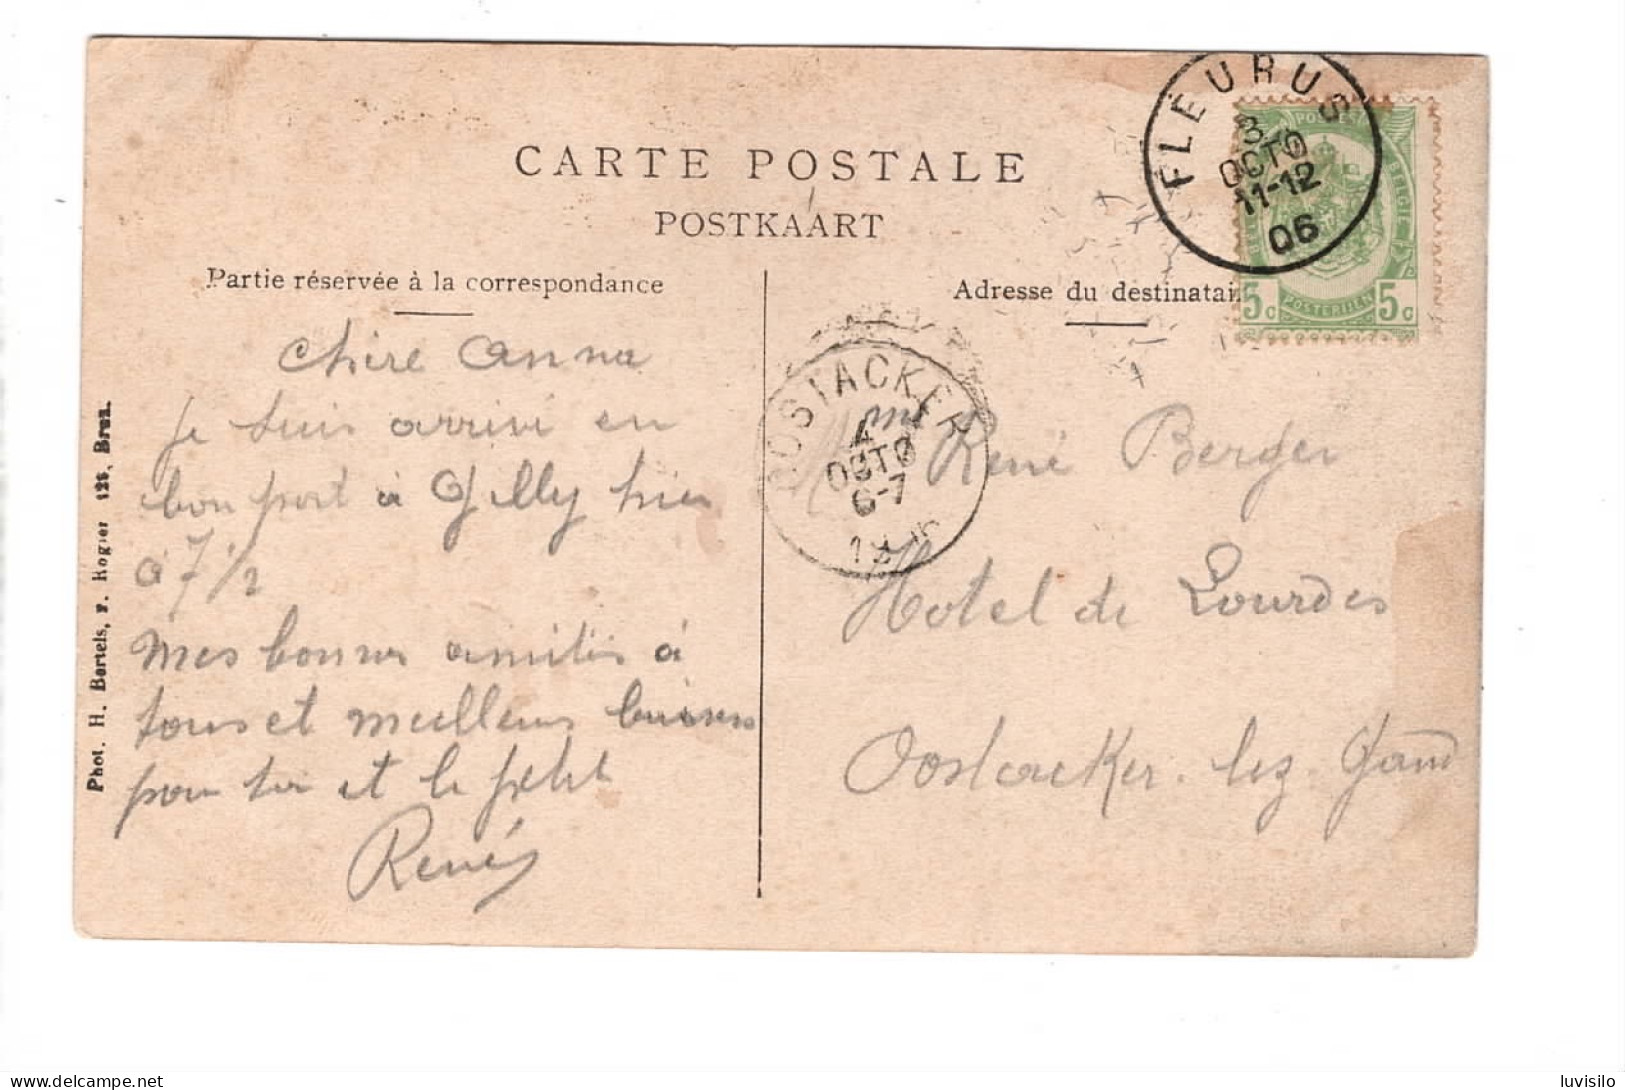 CARTE POSTALE
POSTKAART
Partie réservée à la correspondance
Adresse du destinatai
FLEURUS
3
OCTO
11-12
06
5c POSTERIJEN 5c
OOSTACKER
4
OCTO
6-7
19
chère Anna
je suis arrivé en
bon port à Gilly hier
à 7 1/2
mes bonnes amitiés à
tous et meilleurs baisers
pour toi et le petit
René
René Berger
Hotel de Lourdes
Oostacker. lez Gand
Phot. H. Bertels, r. Rogier 126, Brux.
delcampe.net
luvisilo